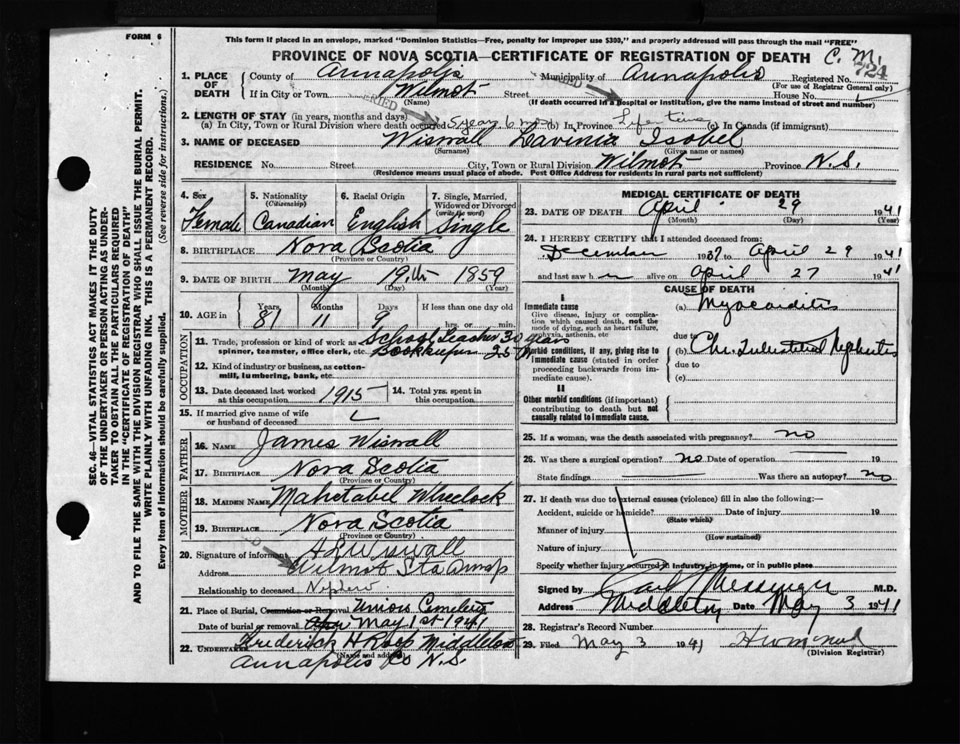 FORM 6
This form if placed in an envelope, marked "Dominion Statistics—Free, penalty for improper use $300," and properly addressed will pass through the mail "FREE"
PROVINCE OF NOVA SCOTIA—CERTIFICATE OF REGISTRATION OF DEATH C. M.
724
1. PLACE OF DEATH County of Annapolis Municipality of Annapolis Registered No.
(For use of Registrar General only)
If in City or Town Wilmot Street House No.
(Name) (If death occurred in a hospital or institution, give the name instead of street and number)
2. LENGTH OF STAY (in years, months and days)
(a) In City, Town or Rural Division where death occurred 5 years 6 mos (b) In Province Life time (c) In Canada (if immigrant)
3. NAME OF DECEASED Wiswall Lavinia Isobel
(Surname) (Given name or names)
RESIDENCE No. Street City, Town or Rural Division Wilmot Province N.S.
(Residence means usual place of abode. Post Office Address for residents in rural parts not sufficient)
4. Sex Female
5. Nationality (Citizenship) Canadian
6. Racial Origin English
7. Single, Married, Widowed or Divorced (write the word) Single
8. BIRTHPLACE Nova Scotia
(Province or Country)
9. DATE OF BIRTH May 19th 1859
(Month) (Day) (Year)
10. AGE in Years 81 Months 11 Days 9 If less than one day old
hrs. or min.
OCCUPATION
11. Trade, profession or kind of work as School Teacher 30 years
spinner, teamster, office clerk, etc. Bookkeeper 25
12. Kind of industry or business, as cotton-
mill, lumbering, bank, etc.
13. Date deceased last worked at this occupation 1915
14. Total yrs. spent in this occupation
15. If married give name of wife or husband of deceased
FATHER
16. NAME James Wiswall
17. BIRTHPLACE Nova Scotia
(Province or Country)
MOTHER
18. MAIDEN NAME Mahetabel Wheelock
19. BIRTHPLACE Nova Scotia
(Province or Country)
20. Signature of informant H L Wiswall
Address Wilmot Sta Annap
Relationship to deceased Nephew
21. Place of Burial, Cremation or Removal Union Cemetery
Date of burial or removal May 1st 1941
22. UNDERTAKER Frederick H Roop Middleton
(Name and address)
Annapolis Co N.S.
MEDICAL CERTIFICATE OF DEATH
23. DATE OF DEATH April 29 1941
(Month) (Day) (Year)
24. I HEREBY CERTIFY that I attended deceased from:
December 1937 to April 29 1941
and last saw h alive on April 27 1941
CAUSE OF DEATH
I
Immediate cause (a) Myocarditis
Give disease, injury or complication which caused death, not the mode of dying, such as heart failure, asphyxia, asthenia, etc
due to
Morbid conditions, if any, giving rise to immediate cause (stated in order proceeding backwards from immediate cause).
(b) Chr. Interstitial Nephritis
due to
(c)
II
Other morbid conditions (if important) contributing to death but not causally related to immediate cause.
25. If a woman, was the death associated with pregnancy? no
26. Was there a surgical operation? no Date of operation 19
State findings Was there an autopsy? no
27. If death was due to external causes (violence) fill in also the following:—
Accident, suicide or homicide? Date of injury 19
(State which)
Manner of injury
(How sustained)
Nature of injury
Specify whether injury occurred in industry, in home, or in public place
Signed by Carl Messenger M.D.
Address Middleton Date May 3 1941
28. Registrar's Record Number
29. Filed May 3 1941
(Division Registrar)
SEC. 46—VITAL STATISTICS ACT MAKES IT THE DUTY
OF THE UNDERTAKER OR PERSON ACTING AS UNDER-
TAKER TO OBTAIN ALL THE PARTICULARS REQUIRED
IN THE "CERTIFICATE OF REGISTRATION OF DEATH"
AND TO FILE THE SAME WITH THE DIVISION REGISTRAR WHO SHALL ISSUE THE BURIAL PERMIT.
WRITE PLAINLY WITH UNFADING INK. THIS IS A PERMANENT RECORD.
Every item of information should be carefully supplied. (See reverse side for instructions.)